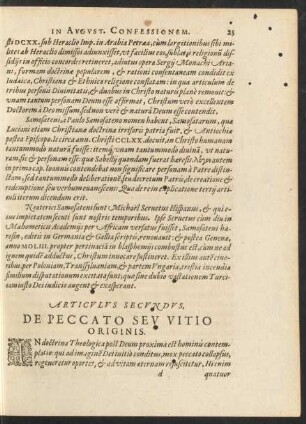 IN AVGVST. CONFESSIONEM. 25
sti DCXX. sub Heraclio Imp. in Arabia Petraea, cum largitionibus sibi mi-
lites ab Heraclio dimissos adiunxisset, ut facilius eos, sublatis religionū dis-
sidijs in officio concordes retineret, adiutus opera Sergij Monachi Aria-
ni, formam doctrinæ popularem, & rationi consentaneam condidit ex
Iudaica, Christiana & Ethnica religione conflatam: in qua articulum de
tribus personis Diuinitatis, & duabus in Christo naturis planè remouet: &
vnam tantum personam Deum esse affirmat, Christum verò excellentem
Doctorem à Deo missum, sed non verè & naturâ Deum esse contendit.
Samosateni, à Paulo Samosateno nomen habent, Samosatarum, qua
Luciani etiam Christiana doctrina irrisoris patria fuit, & Antiochiæ
postea Episcopo. Is circa ann. Christi CCLXX. docuit, in Christo humanam
tantummodo naturā fuisse: itemq; vnam tantummodo diuinā, vt natu-
ram, sic & personam esse: quæ Sabellij quondam fuerat hæresis
in primo cap. Ioannis contendebat non significare personam à Patre distin-
ctam, sed tantummodo deliberationē, seu decretum Patris, de creatione &
redemptione seu verbum euanescens. Quæ de re in explicatione tertij arti-
culi iterum dicendum erit.
Neoterici Samosateni sunt Michael Seruetus Hispanus, & qui e-
ius impietatem secuti sunt nostris temporibus. Ipse Seruetus cum diu in
Mahometicis Academijs per Africam versatus fuisset, Samosateni hæ-
resin, editis in Germania & Gallia scriptis, renouauit: & postea Geneuæ,
anno MDLIII. propter pertinaciā in blasphemijs combustus est, cùm ne ad
ignem quidē adductus, Christum inuocare sustineret. Ex illius autē cineri-
bus per Poloniam, Transsyluaniam, & partem Vngariæ, tristia incendia
similium disputationum excitata sunt: quæ sine dubio vastationem Turci-
cam iusto Dei iudicio augent & exasperant.
ARTICVLVS SECVNDVS,
DE PECCATO SEV VITIO
ORIGINIS.
IN doctrina Theologica post Deum proxima est hominis contem-
platio: qui ad imaginē Dei initio conditus, mox peccato collapsus,
regeneretur oportet, & ad vitam æternam resuscitetur. Hi enim
d quatuor